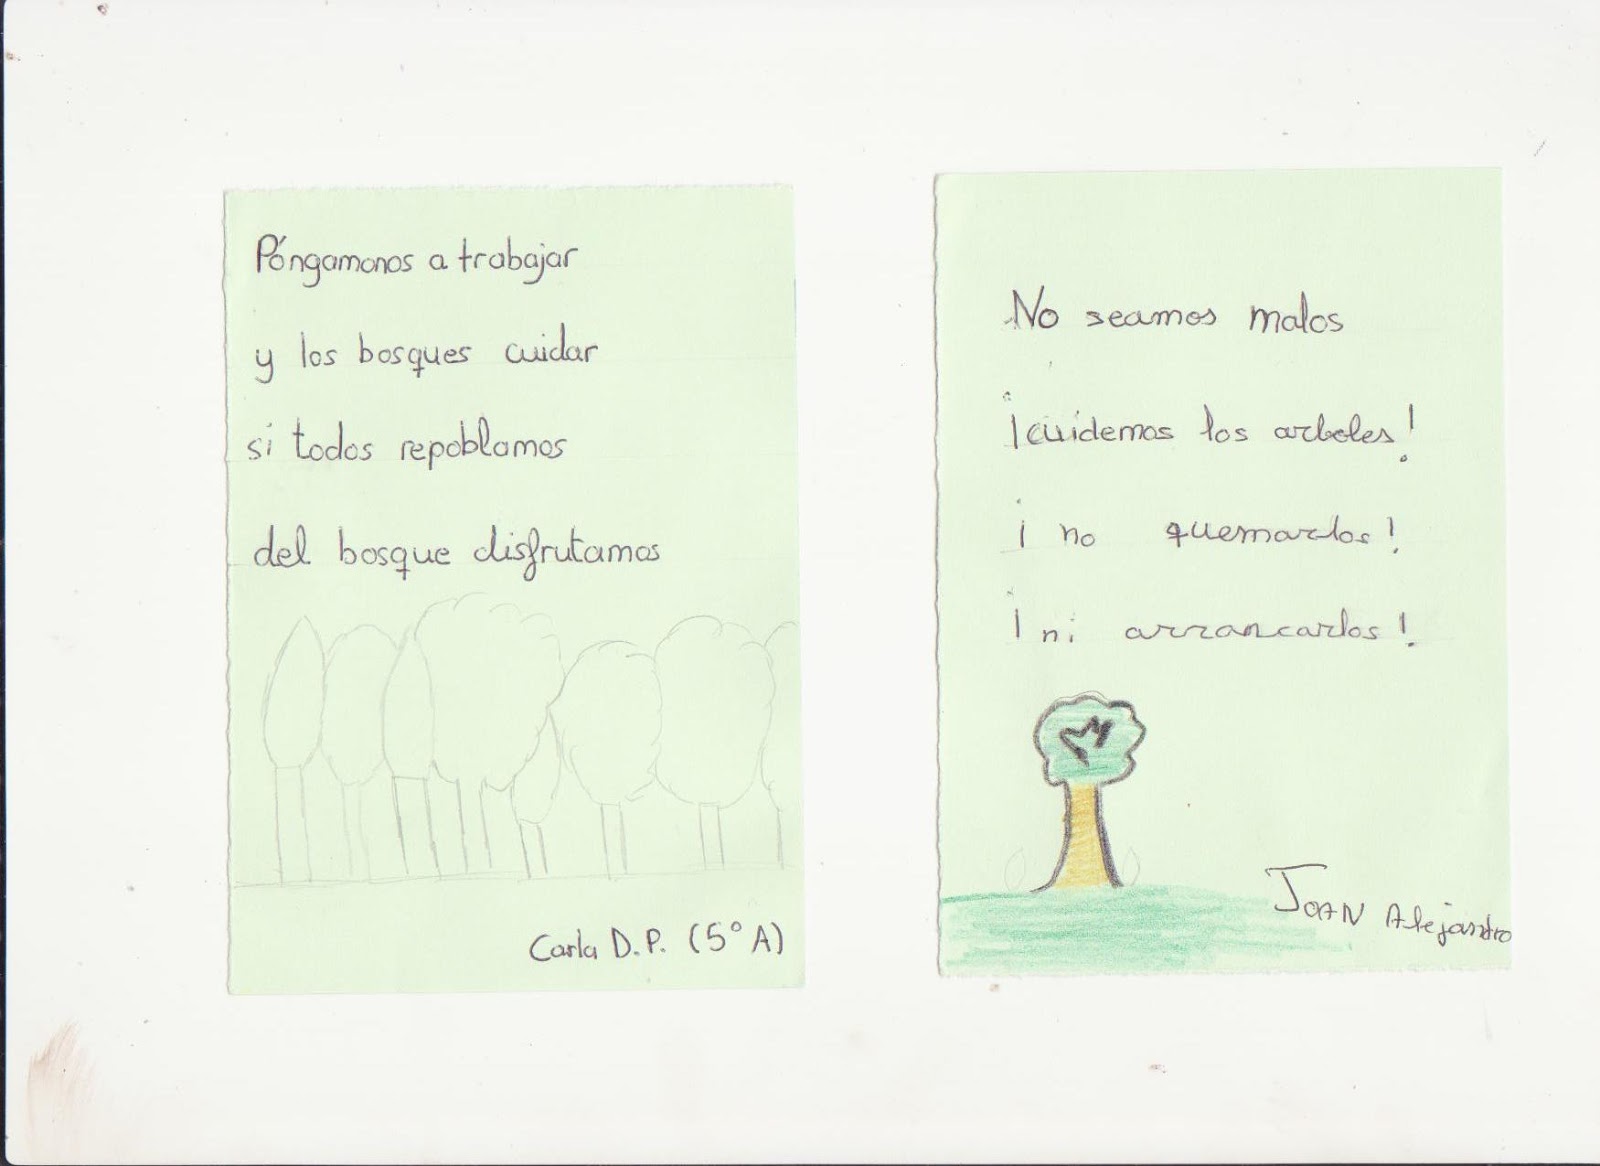 Póngamonos a trabajar
y los bosques cuidar
si todos repoblamos
del bosque disfrutamos
Carla D.P. (5º A)
No seamos malos
¡cuidemos los arboles!
¡no quemarlos!
¡ni arrancarlos!
JOAN Alejandro